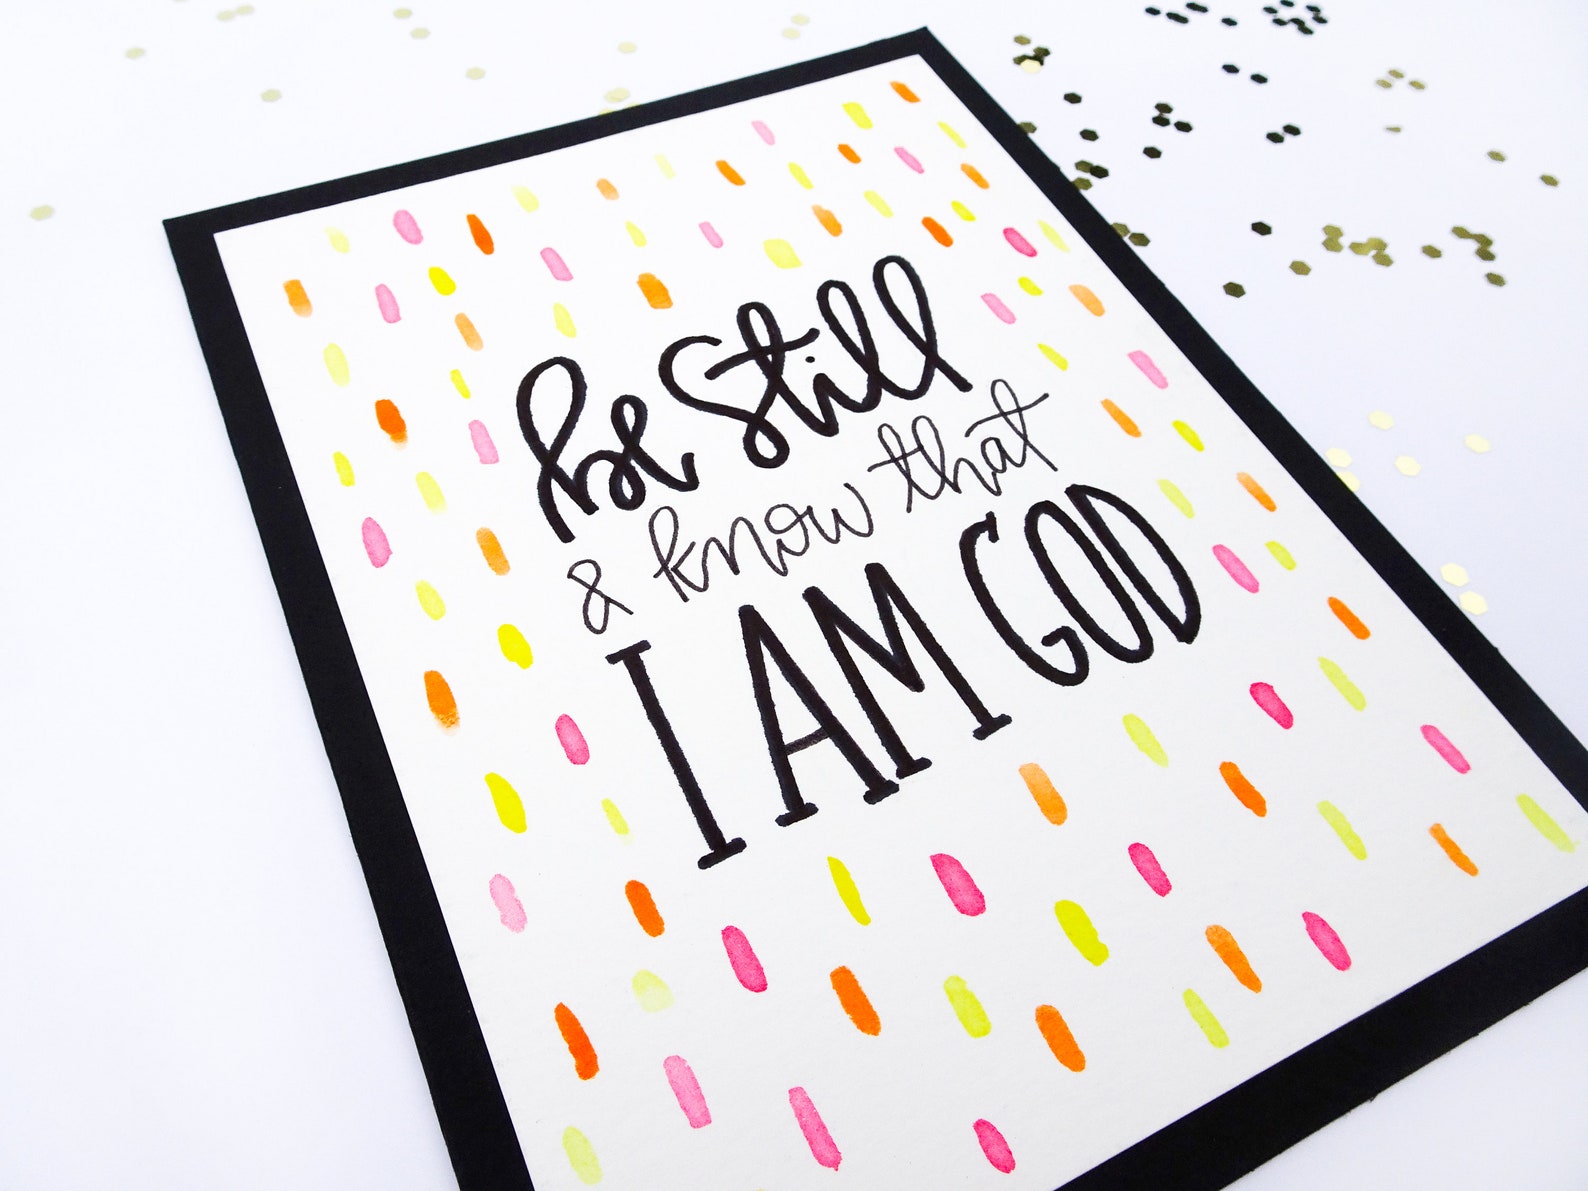 be Still
& know that
I AM GOD